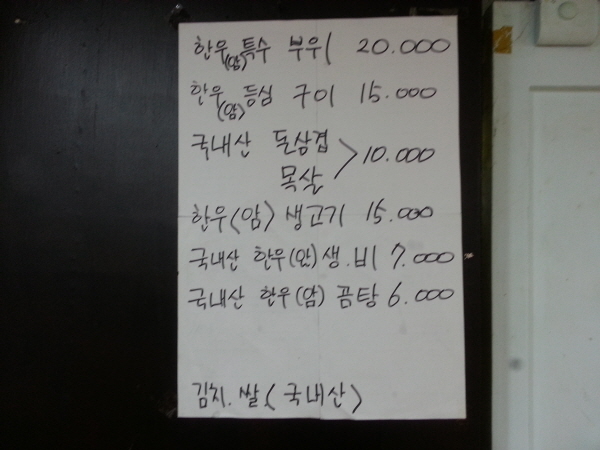 한우(암) 특수 부위 20.000
한우(암) 등심 구이 15.000
국내산 돈삼겹
목살 > 10.000
한우(암) 생고기 15.000
국내산 한우(암) 생.비 7.000
국내산 한우(암) 곰탕 6.000
김치.쌀(국내산)